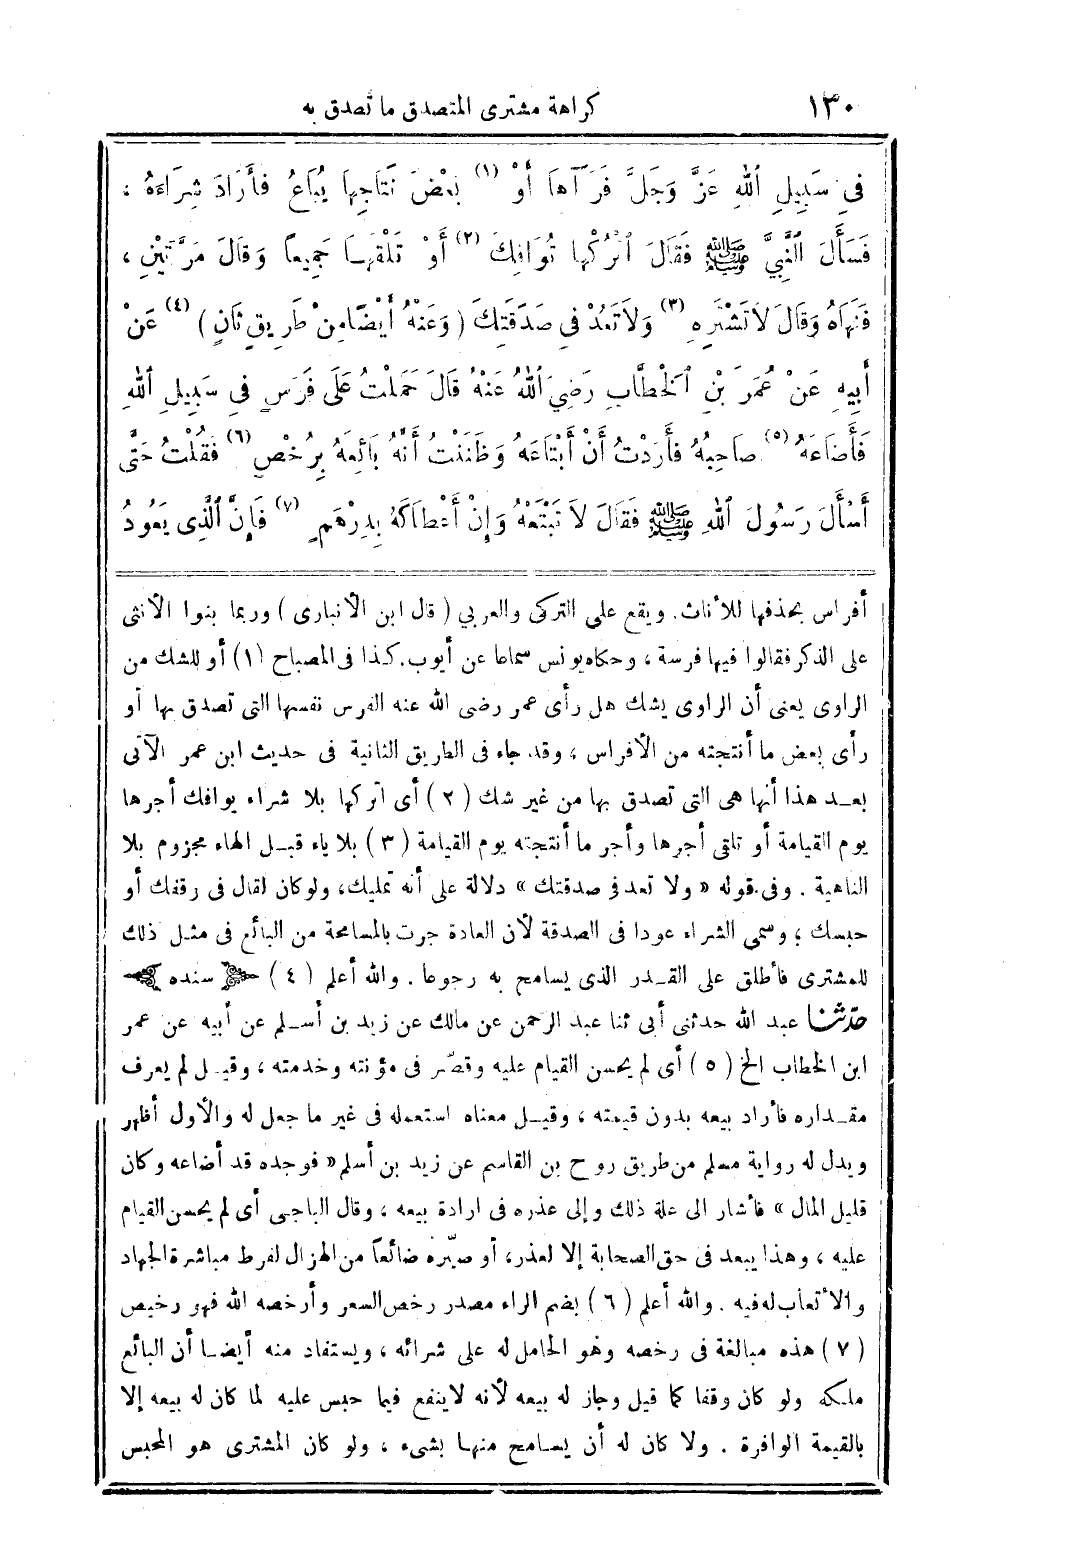 ١٣٠ كراهة مشترى المتصدق ما تصدق به
فِي سَبِيلِ اللهِ عَزَّ وَجَلَّ فَرَآهَا أَوْ (١) بَعْضَ نَتَاجِهَا يُبَاعُ فَأَرَادَ شِرَاءَهُ ،
فَسَأَلَ النَّبِيَّ ﷺ فَقَالَ اتْرُكْهَا تُوَافِكَ (٢) أَوْ تَلْقَهَا جَمِيعًا وَقَالَ مَرَّتَيْنِ ،
فَنَهَاهُ وَقَالَ لاَ تَشْتَرِهِ (٣) وَلاَ تَعُدْ فِي صَدَقَتِكَ ( وَعَنْهُ أَيْضًا مِنْ طَرِيقٍ ثَانٍ ) (٤) عَنْ
أَبِيهِ عَنْ عُمَرَ بْنِ الْخَطَّابِ رَضِيَ اللهُ عَنْهُ قَالَ حَمَلْتُ عَلَى فَرَسٍ فِي سَبِيلِ اللهِ
فَأَضَاعَهُ (٥) صَاحِبُهُ فَأَرَدْتُ أَنْ أَبْتَاعَهُ وَظَنَنْتُ أَنَّهُ بَائِعَهُ بِرُخْصٍ (٦) فَقُلْتُ حَتَّى
أَسْأَلَ رَسُولَ اللهِ ﷺ فَقَالَ لاَ تَبْتَعْهُ وَإِنْ أَعْطَاكَهُ بِدِرْهَمٍ (٧) فَإِنَّ الَّذِى يَعُودُ
أفراس بحذفها للأناث. ويقع على التركى والعربي ( قال ابن الأنبارى ) وربما بنوا الأنثى
على الذكر فقالوا فيها فرسة ، وحكاه يونس سماعا عن أيوب. كذا فى المصباح (١) أو للشك من
الراوى يعنى أن الراوى يشك هل رأى عمر رضى الله عنه الفرس نفسها التى تصدق بها أو
رأى بعض ما أنتجته من الأفراس ، وقد جاء فى الطريق الثانية فى حديث ابن عمر الآتى
بعد هذا أنها هى التى تصدق بها من غير شك ( ٢ ) أى اتركها بلا شراء يوافك أجرها
يوم القيامة أو تلقى أجرها وأجر ما أنتجته يوم القيامة ( ٣ ) بلا ياء قبل الهاء مجزوم بلا
الناهية . وفى قوله « ولا تعد فى صدقتك » دلالة على أنه تمليك، ولو كان لقال فى رقفك أو
حبسك ؛ وسمى الشراء عودا فى الصدقة لأن العادة جرت بالمسامحة من البائع فى مثل ذلك
للمشترى فأطلق على القدر الذى يسامح به رجوعا . والله أعلم ( ٤ ) سنده
حدثنا عبد الله حدثنى أبى ثنا عبد الرحمن عن مالك عن زيد بن أسلم عن أبيه عن عمر
ابن الخطاب الخ ( ٥ ) أى لم يحسن القيام عليه وقصّر فى مؤنته وخدمته ، وقيل لم يعرف
مقداره فأراد بيعه بدون قيمته ، وقيل معناه استعمله فى غير ما جعل له والأول أظهر
ويدل له رواية مسلم من طريق روح بن القاسم عن زيد بن أسلم « فوجده قد أضاعه وكان
قليل المال » فأشار الى علة ذلك وإلى عذره فى ارادة بيعه ، وقال الباجى أى لم يحسن القيام
عليه ، وهذا يبعد فى حق الصحابة إلا لعذر، أو صيّره ضائعاً من الهزال لفرط مباشرة الجهاد
والأتعاب له فيه . والله أعلم ( ٦ ) بضم الراء مصدر رخص السعر وأرخصه الله فهو رخيص
( ٧ ) هذه مبالغة فى رخصه وهو الحامل له على شرائه ، ويستفاد منه أيضا أن البائع
ملكه ولو كان وقفا كما قيل وجاز له بيعه لأنه لاينفع فيما حبس عليه لما كان له بيعه إلا
بالقيمة الوافرة . ولا كان له أن يسامح منها بشىء ، ولو كان المشترى هو المحبس